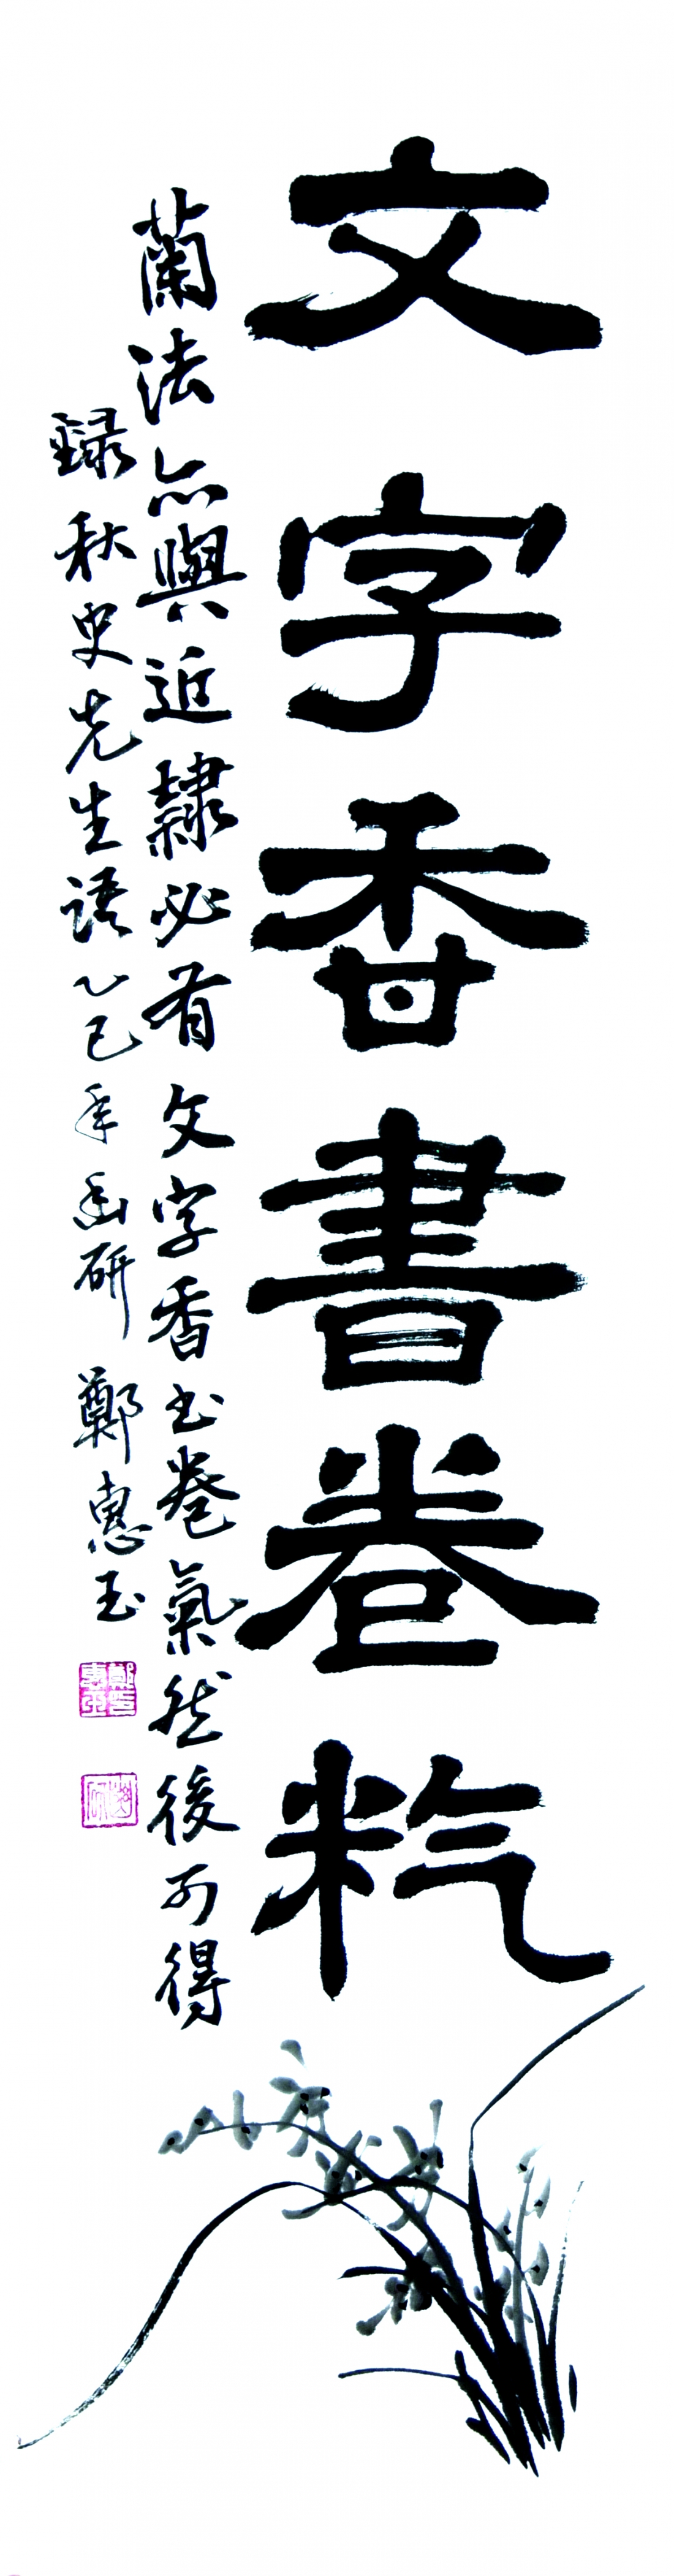 文字香書卷氣
蘭法亦與近隸必有文字香書卷氣然後可得
録秋史先生語乙巳年幽研鄭惠玉